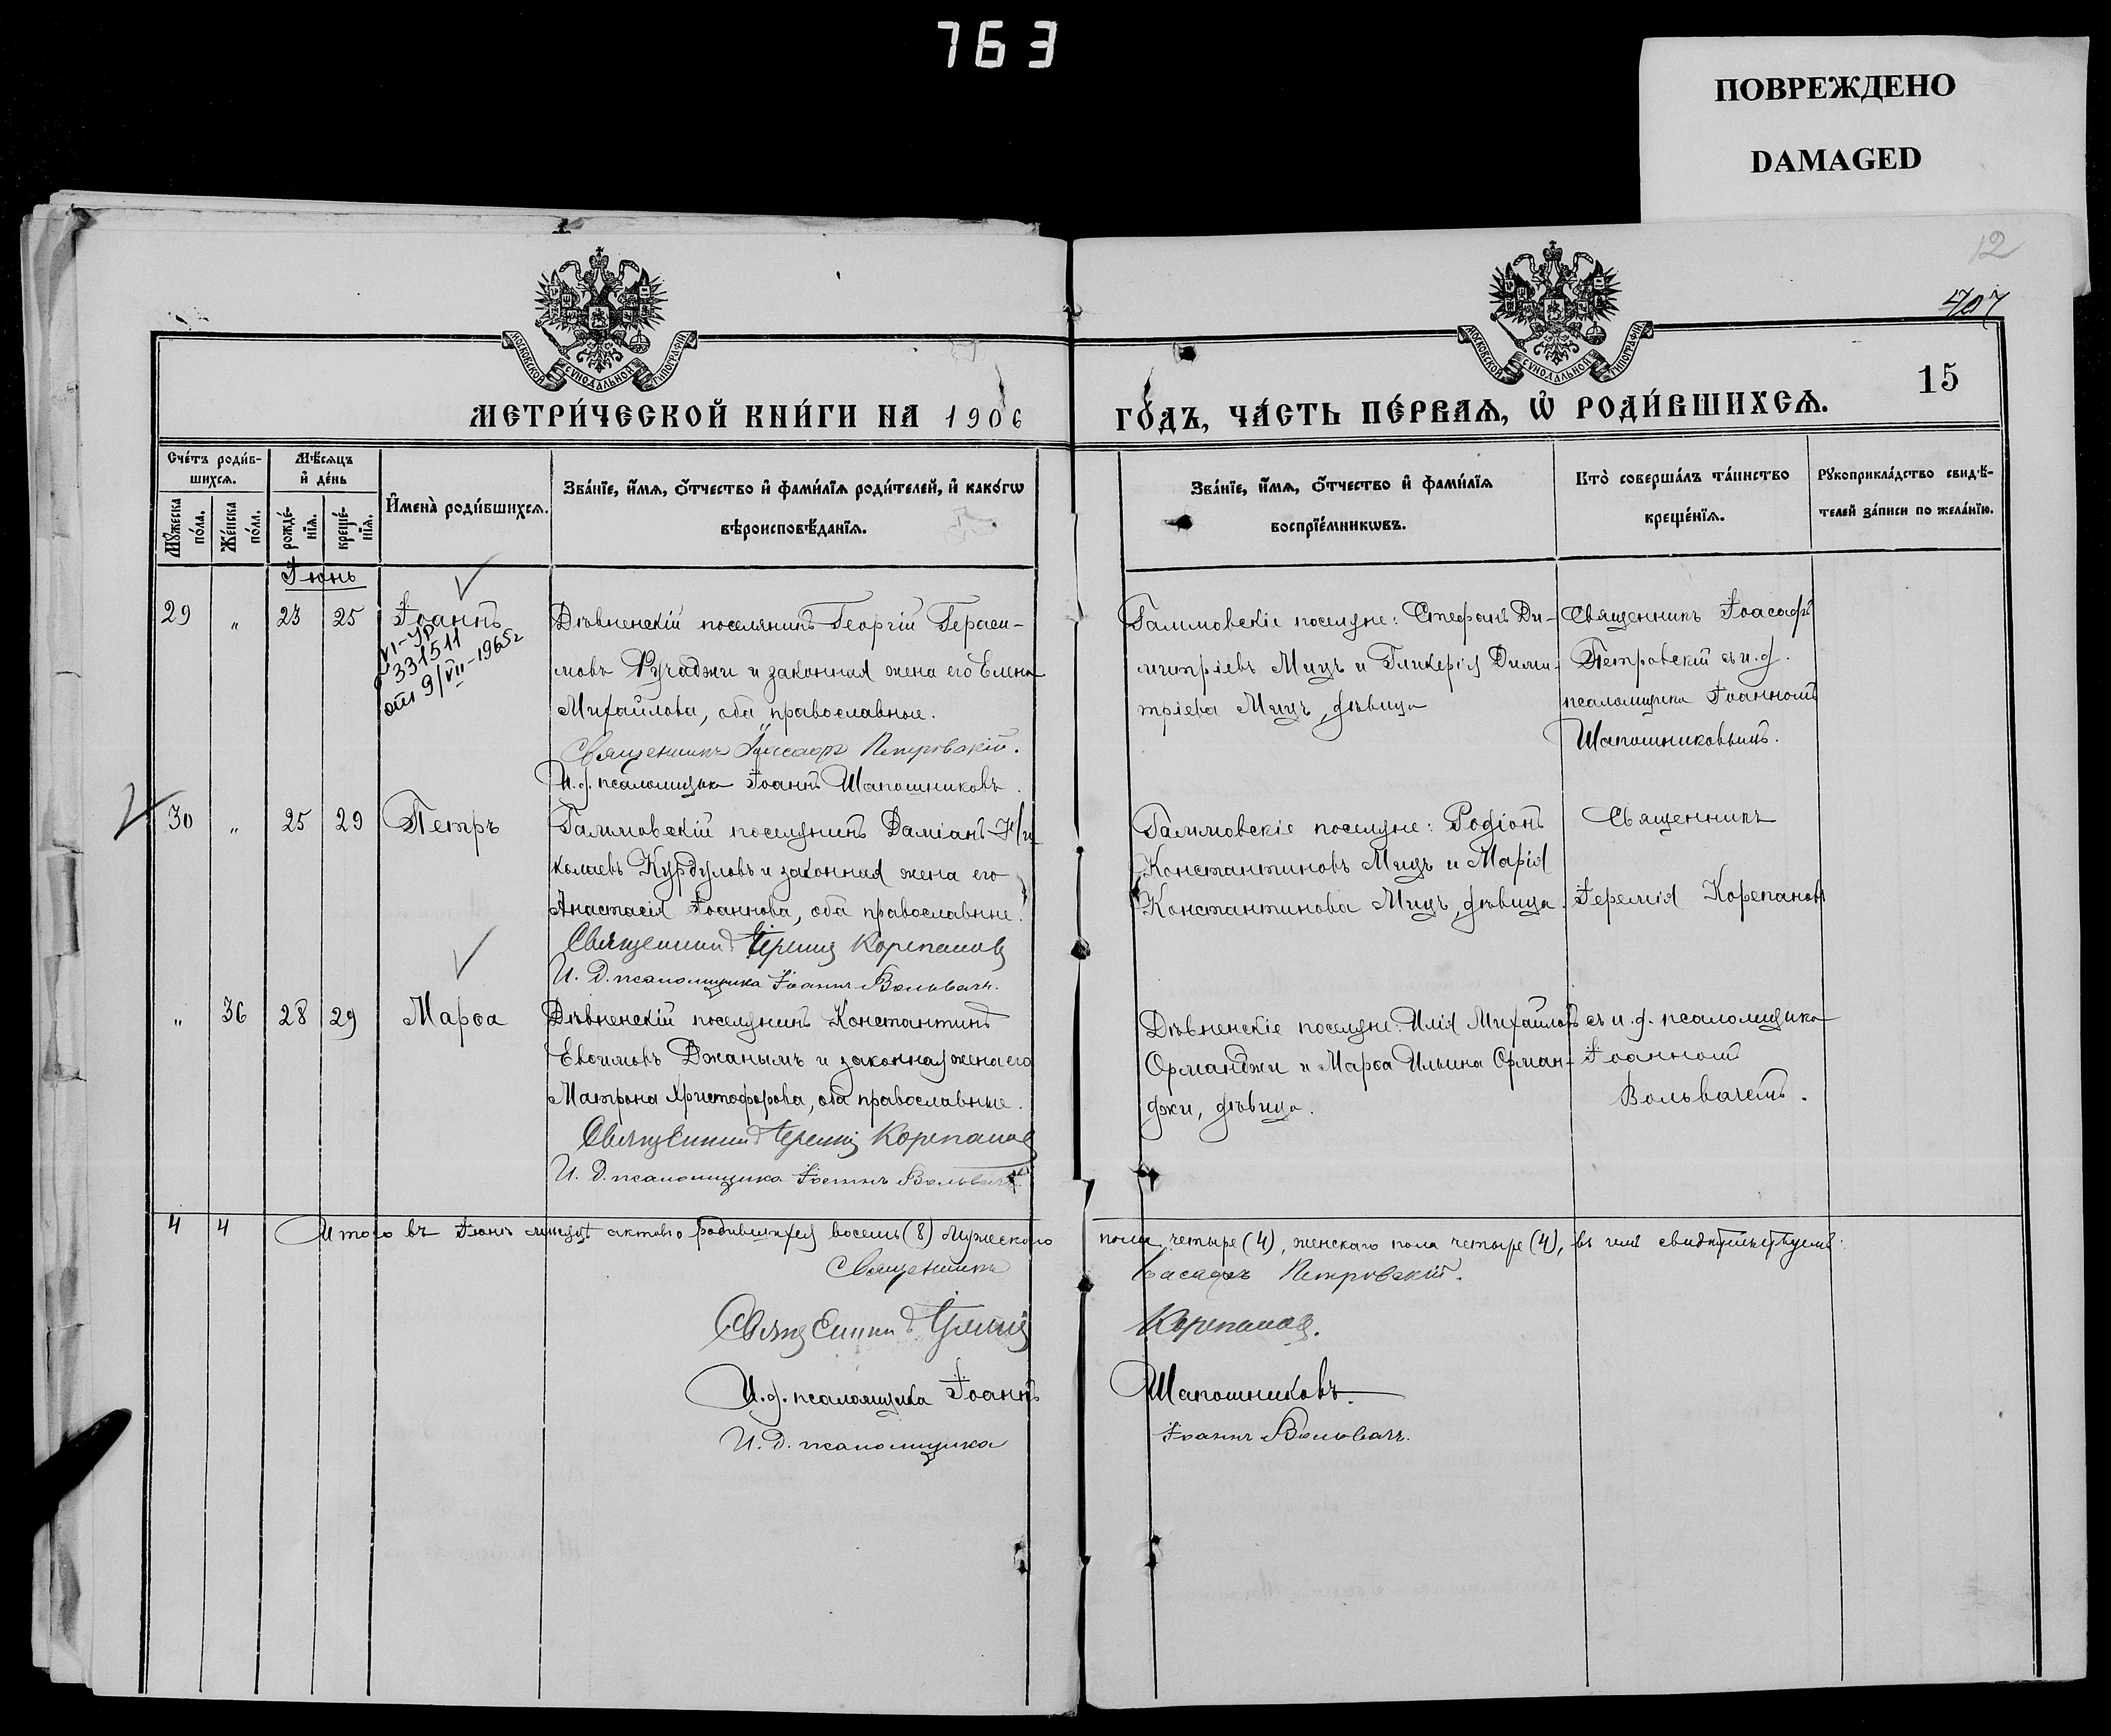 763
ПОВРЕЖДЕНО
DAMAGED
12
407
МОСКОВСКОЙ СѴНОДАЛЬНОЙ ТИПОГРАФІИ
МОСКОВСКОЙ СѴНОДАЛЬНОЙ ТИПОГРАФІИ
15
МЕТРИ́ЧЕСКОЙ КНИ́ГИ НА 1906
ГО́ДЪ, ЧА́СТЬ ПЕ́РВАѦ, Ѡ҆ РОДИ́ВШИХСѦ.
Сче́тъ роди́в-
шихсѧ.
Мꙋ́жеска по́ла.
Же́нска по́ла.
Мѣ́сѧцъ
и҆ де́нь
рожде́-нїѧ.
креще́-нїѧ.
И҆мена̀ роди́вшихсѧ.
Зва́нїе, и҆́мѧ, ѻ҆́тчество и҆ фами́лїѧ роди́телей, и҆ како́гѡ
вѣроисповѣ́данїѧ.
Зва́нїе, и҆́мѧ, ѻ҆́тчество и҆ фами́лїѧ
воспрїе́мникѡвъ.
Кто̀ соверша́лъ та́инство
креще́нїѧ.
Рꙋкоприкла́дство свидѣ́-
телей за́писи по жела́нїю.
Іюнь
29 " 23 25 Іоаннъ
VI-УР
331511
от 9/VII-1965г
Дѣвненскій поселянинъ Георгій Гераси-
мовъ Ѳучаджи и законная жена его Елена
Михайлова, оба православные.
Священникъ Іоасафъ Петровскій.
И. д. псаломщика Іоаннъ Шапошниковъ.
Галимовскіе поселяне: Стефанъ Ди-
митріевъ Мицъ и Гликерія Дими-
тріева Мицъ, дѣвица
Священникъ Іоасафъ
Петровскій съ и. д.
псаломщика Іоанномъ
Шапошниковымъ.
30 " 25 29 Петръ
Галимовскій поселянинъ Даміанъ Ни-
колаевъ Курдуловъ и законная жена его
Анастасія Іоаннова, оба православные.
Священникъ Іеремія Корепановъ
И. Д. псаломщика Іоаннъ Вольвачъ.
Галимовскіе поселяне: Родіонъ
Константиновъ Мицъ и Марія
Константинова Мицъ, дѣвица.
Священникъ
Іеремія Корепановъ
" 36 28 29 Марѳа
Дѣвненскій поселянинъ Константинъ
Евѳимовъ Джанымъ и законная жена его
Матрона Христофорова, оба православные.
Священникъ Іеремія Корепановъ
И. Д. псаломщика Іоаннъ Вольвачъ.
Дѣвненскіе поселяне: Илія Михайловъ
Орманджи и Марѳа Ильина Орман-
джи, дѣвица.
съ и. д. псаломщика
Іоанномъ
Вольвачемъ.
4 4 Итого въ Іюнѣ мѣсяцѣ актовъ о родившихся восемь (8) мужескаго
пола четыре (4), женскаго пола четыре (4), въ чемъ свидѣтельствуемъ:
Священникъ Іоасафъ Петровскій.
Священникъ Іеремія Корепановъ.
И. д. псаломщика Іоаннъ Шапошниковъ.
И. Д. псаломщика Іоаннъ Вольвачъ.